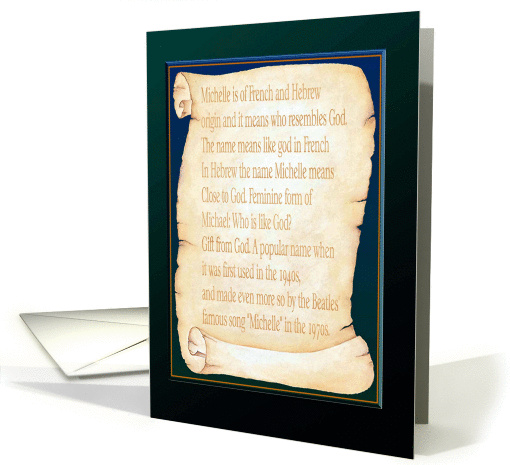 Michelle is of French and Hebrew
origin and it means who resembles God.
The name means like god in French
In Hebrew the name Michelle means
Close to God. Feminine form of
Michael: Who is like God?
Gift from God. A popular name when
it was first used in the 1940s,
and made even more so by the Beatles
famous song "Michelle" in the 1970s.